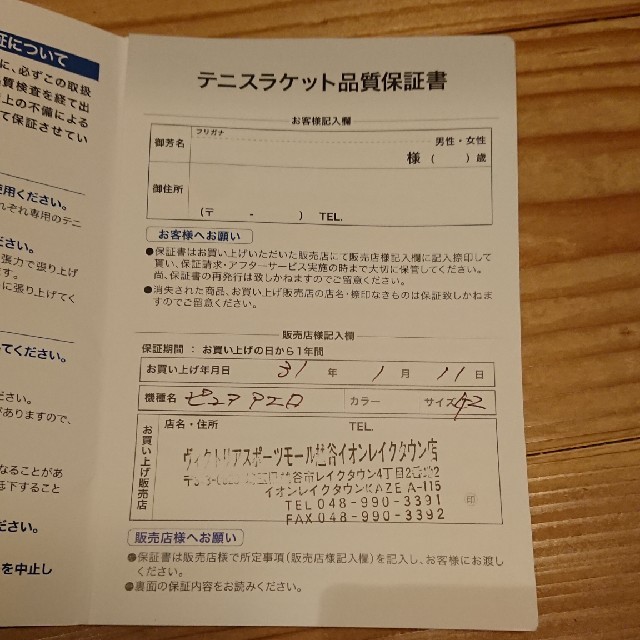 証について
に、必ずこの取扱
品質検査を経て出
上の不備による
て保証させてい
使用ください。
れぞれ専用のテニ
ださい。
張力で張り上げ
ます。
に張り上げてく
てください。
ださい。
がありますので、
なることがあ
下すること
ださい。
を中止し
テニスラケット品質保証書
お客様記入欄
フリガナ
御芳名 男性・女性
様 ( ) 歳
御住所
(〒 - ) TEL.
お客様へお願い
●保証書はお買い上げいただいた販売店にて販売店様記入欄に記入捺印して
貰い、保証請求・アフターサービス実施の時まで大切に保管してください。
尚、保証書の再発行は致しかねますのでご留意ください。
●消失された商品、お買い上げ販売店の店名・捺印なきものは保証致しかねま
すのでご留意ください。
販売店様記入欄
保証期間 : お買い上げの日から1年間
お買い上げ年月日 31 年 1 月 11 日
機種名 ピュアアエロ カラー サイズ G2
お買い上げ販売店
店名・住所 TEL.
ヴィクトリアスポーツモール越谷イオンレイクタウン店
谷市レイクタウン4丁目2番地2
イオンレイクタウンKAZE A-115
TEL 048-990-3391
FAX 048-990-3392
印
販売店様へお願い
●保証書は販売店様で所定事項(販売店様記入欄)を記入し、お客様にお渡し
ください。
●裏面の保証内容をお読みください。